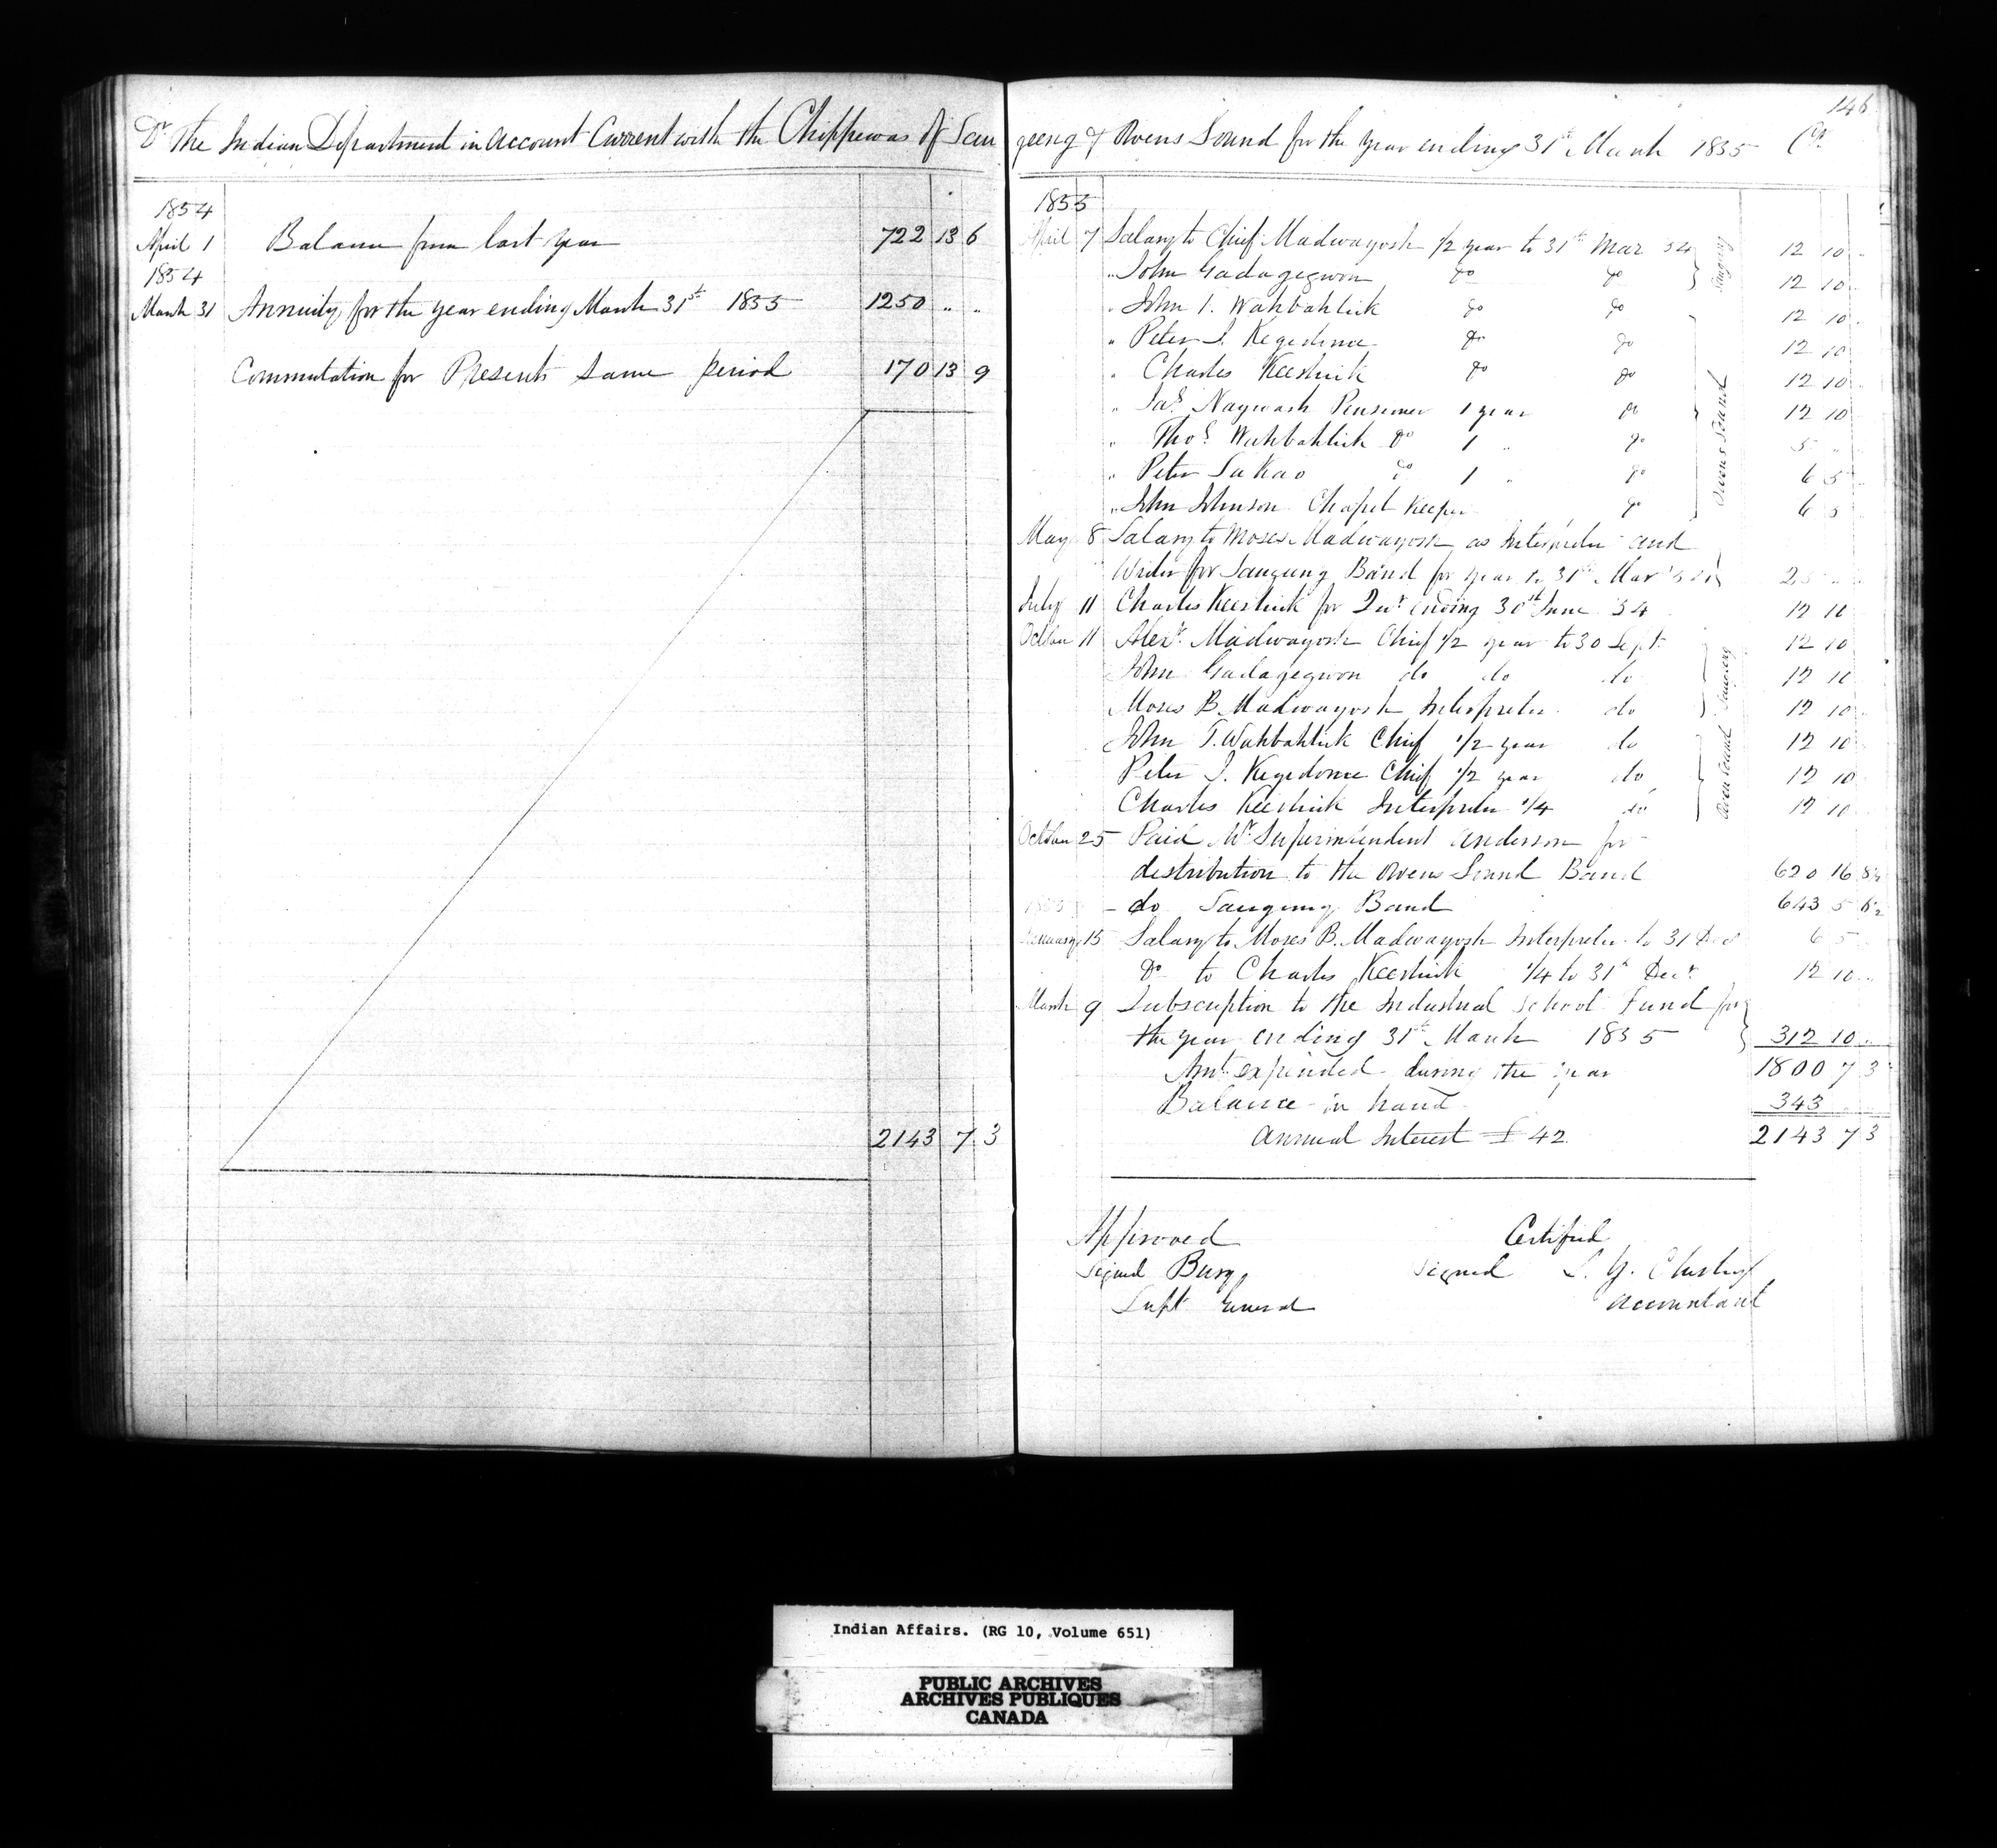 Dr The Indian Department in Account Current with the Chippewas of Sau
1854
April 1 Balance from last year 722 13 6
1854
March 31 Annuity for the year ending March 31st 1855 1250 " "
Commutation for Presents same period 170 13 9
2143 7 3
146
geeng & Owens Sound for the year ending 31st March 1855 Cr
1855
April 7 Salary to Chief Madwayosh 1/2 year to 31st Mar 54 12 10
" John Gadagegwon do do 12 10
" John T. Wahbahtick do do 12 10
" Peter J. Kegedonce do do 12 10
" Charles Keeshick do do 12 10
" Jas. Naywash Pensioner 1 year do 12 10
" Thos. Wahbahtick do 1 " do 5
" Peter SaKao do 1 " do 6 5
" John Johnson Chapel Keeper do 6 5
Saugeeng
Owens Sound
May 8 Salary to Moses Madwayosh as Interpreter and
Writer for Saugeeng Band for year to 31st Mar 54 25
July 11 Charles Keeshick for Qur ending 30th June 54 12 10
October 11 Alexr. Madwayosh Chief 1/2 year to 30 Sept. 12 10
John Gadagegwon do do do 12 10
Moses B. Madwayosh Interpreter do 12 10
John T. Wahbahtick Chief 1/2 year do 12 10
Peter J. Kegedonce Chief 1/2 year do 12 10
Charles Keeshick Interpreter 1/4 do 12 10
Saugeeng
Owen Sound
October 25 Paid Mr. Superintendent Anderson for
distribution to the Owens Sound Band 620 16
1855 - do Saugeeng Band 643 5
January 15 Salary to Moses B. Madwayosh Interpreter to 31 Dec 6 5
Do to Charles Keeshick 1/4 to 31st Decr. 12 10
March 9 Subscription to the Industrial School Fund for
the year ending 31st March 1855 312 10
Amt. expended during the year 1800 7 3
Balance in hand 343
Annual Interest £42 2143 7 3
Approved Certified
Signed Bury Signed
Supt General Accountant
Indian Affairs. (RG 10, Volume 651)
PUBLIC ARCHIVES
ARCHIVES PUBLIQUES
CANADA